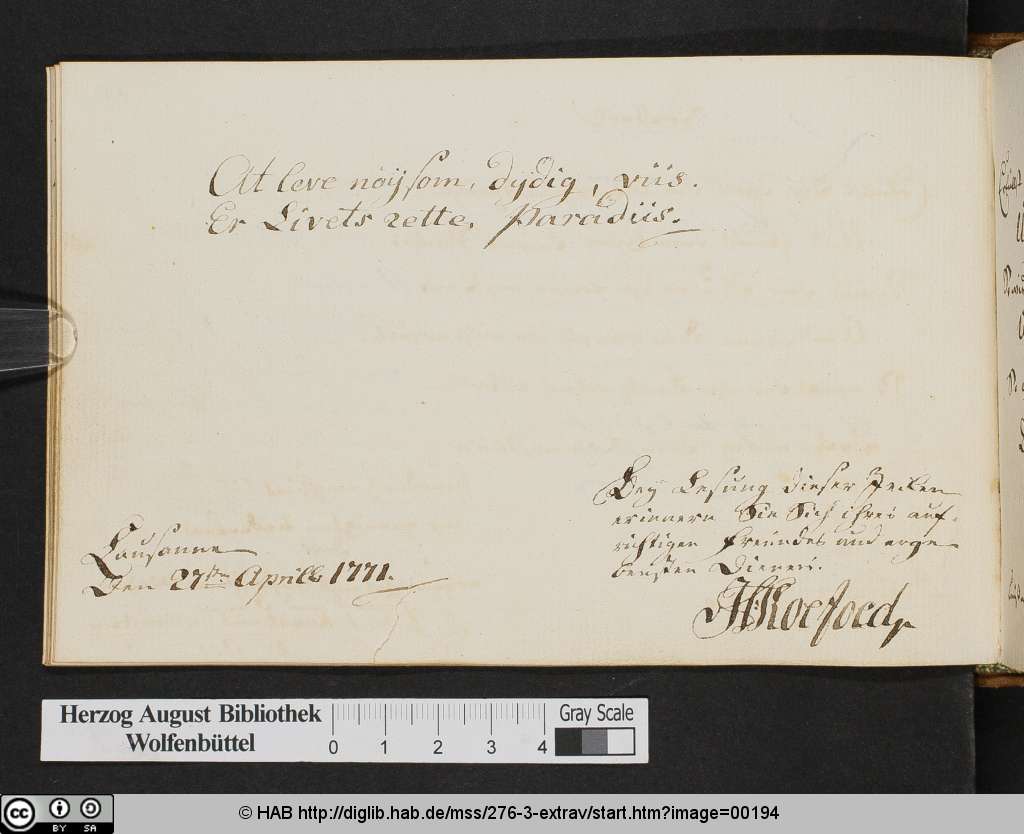 At leve nöysom, dydig, viis.
Er Livets rette. Paradiis.
Bey Lesung dieser Zeilen
erinnern Sie Sich ihres auf-
richtigen Freundes und erge-
bensten Dieners.
HKoefoed
Lausanne
Den 27ten Aprill 1771.
Herzog August Bibliothek
Wolfenbüttel
0 1 2 3 4
Gray Scale
cc BY SA
© HAB http://diglib.hab.de/mss/276-3-extrav/start.htm?image=00194